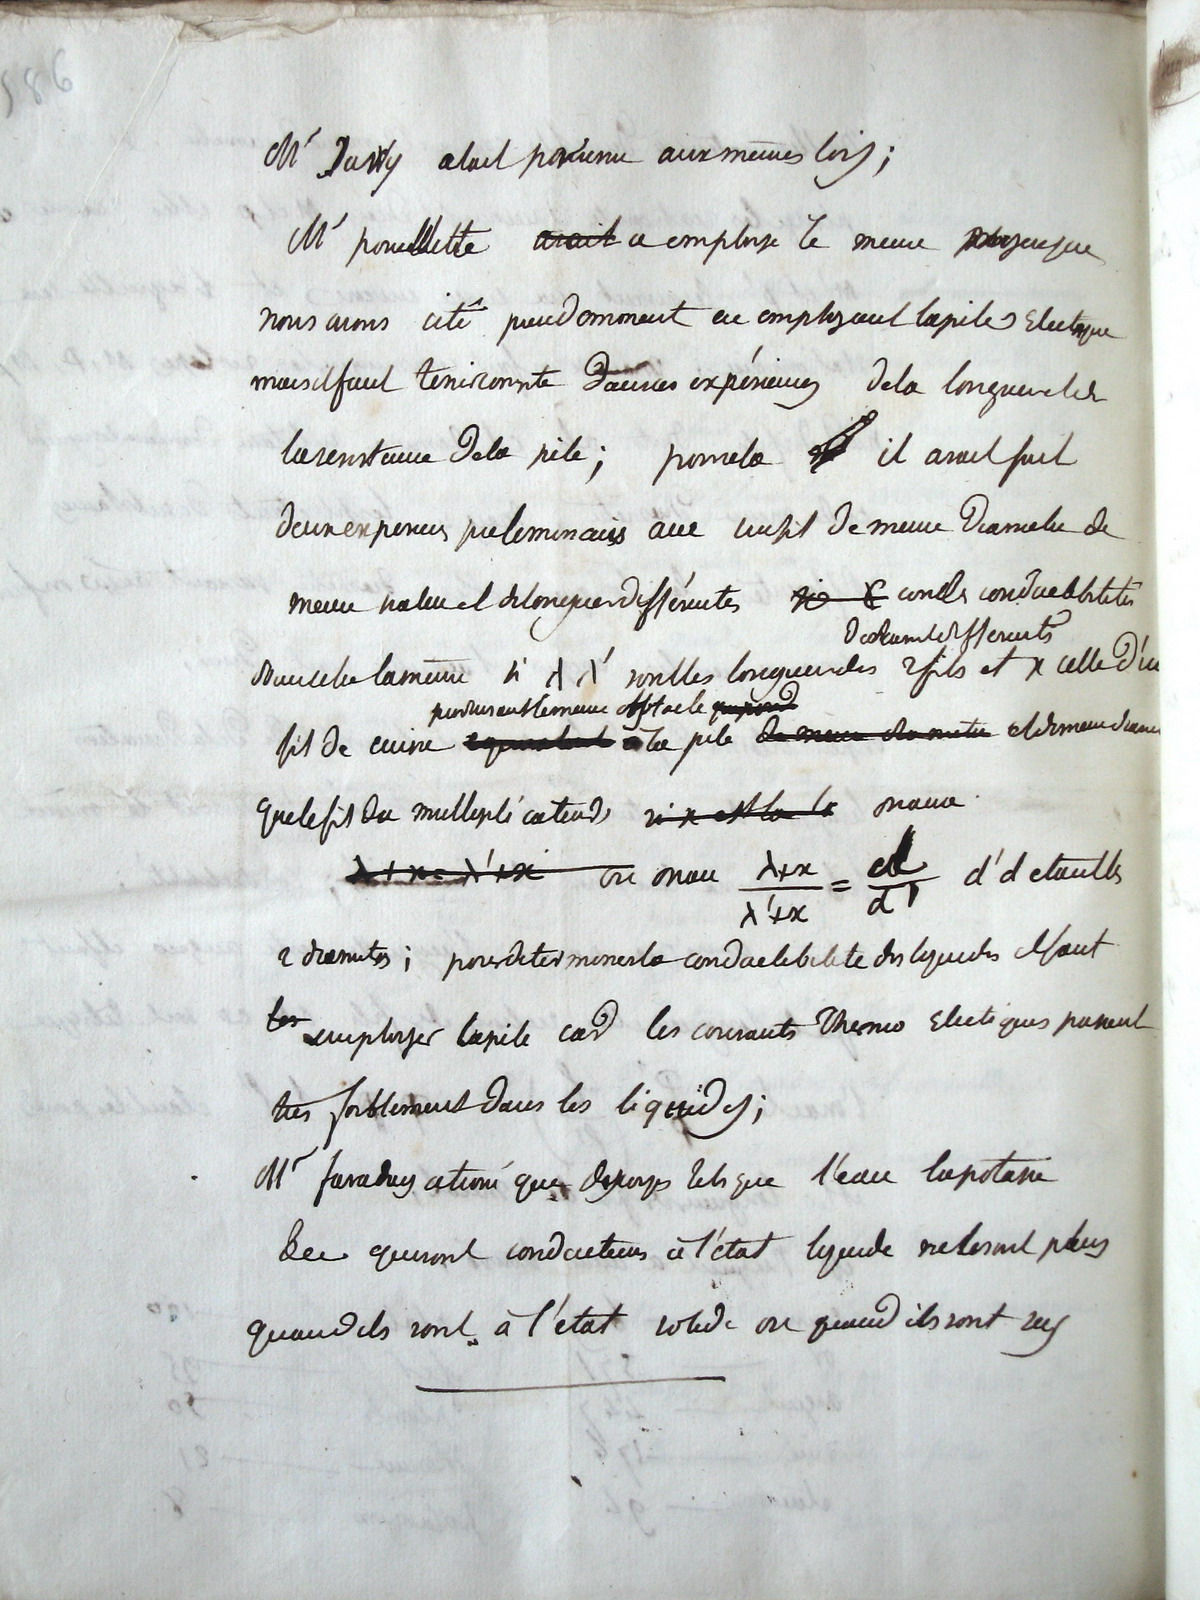 Mr Davy avait parvenu aux mêmes lois;
Mr pouellette avait a employe le meme
nous avons cité précedemment en employant la pile Electrique
mais il faut tenir compte dans ces expériences de la longueur et de
la resistance de la pile; pour cela il avait fait
deux experiences preleminaires avec un fil de meme diametre de
meme nateur et de longueur différentes si x conds conductibilités
de diametre differents
doit etre la même si λ λ' sont les longueur des 2 fils et x celle d'un
produisant le meme obstacle
fil de cuivre equivalent a la pile de meme diametre et de meme diametre
que le fil du multiplicateur si x est la on aura
λ+x= λ'+x ou on au λ+x/λ'+x = d/d' d' d etant les
2 diametres; pour determiner la conductibilite des lyquides il faut
les employer la pile car les courants Thermo Electriques passent
tres foiblement dans les liquides;
Mr faraday a trouvé que des corps tels que l'eau la potasse
&ce qui sont conducteurs à l'état lyquide ne le sont plus
quand ils sont à l'état solide ou quand ils sont secs